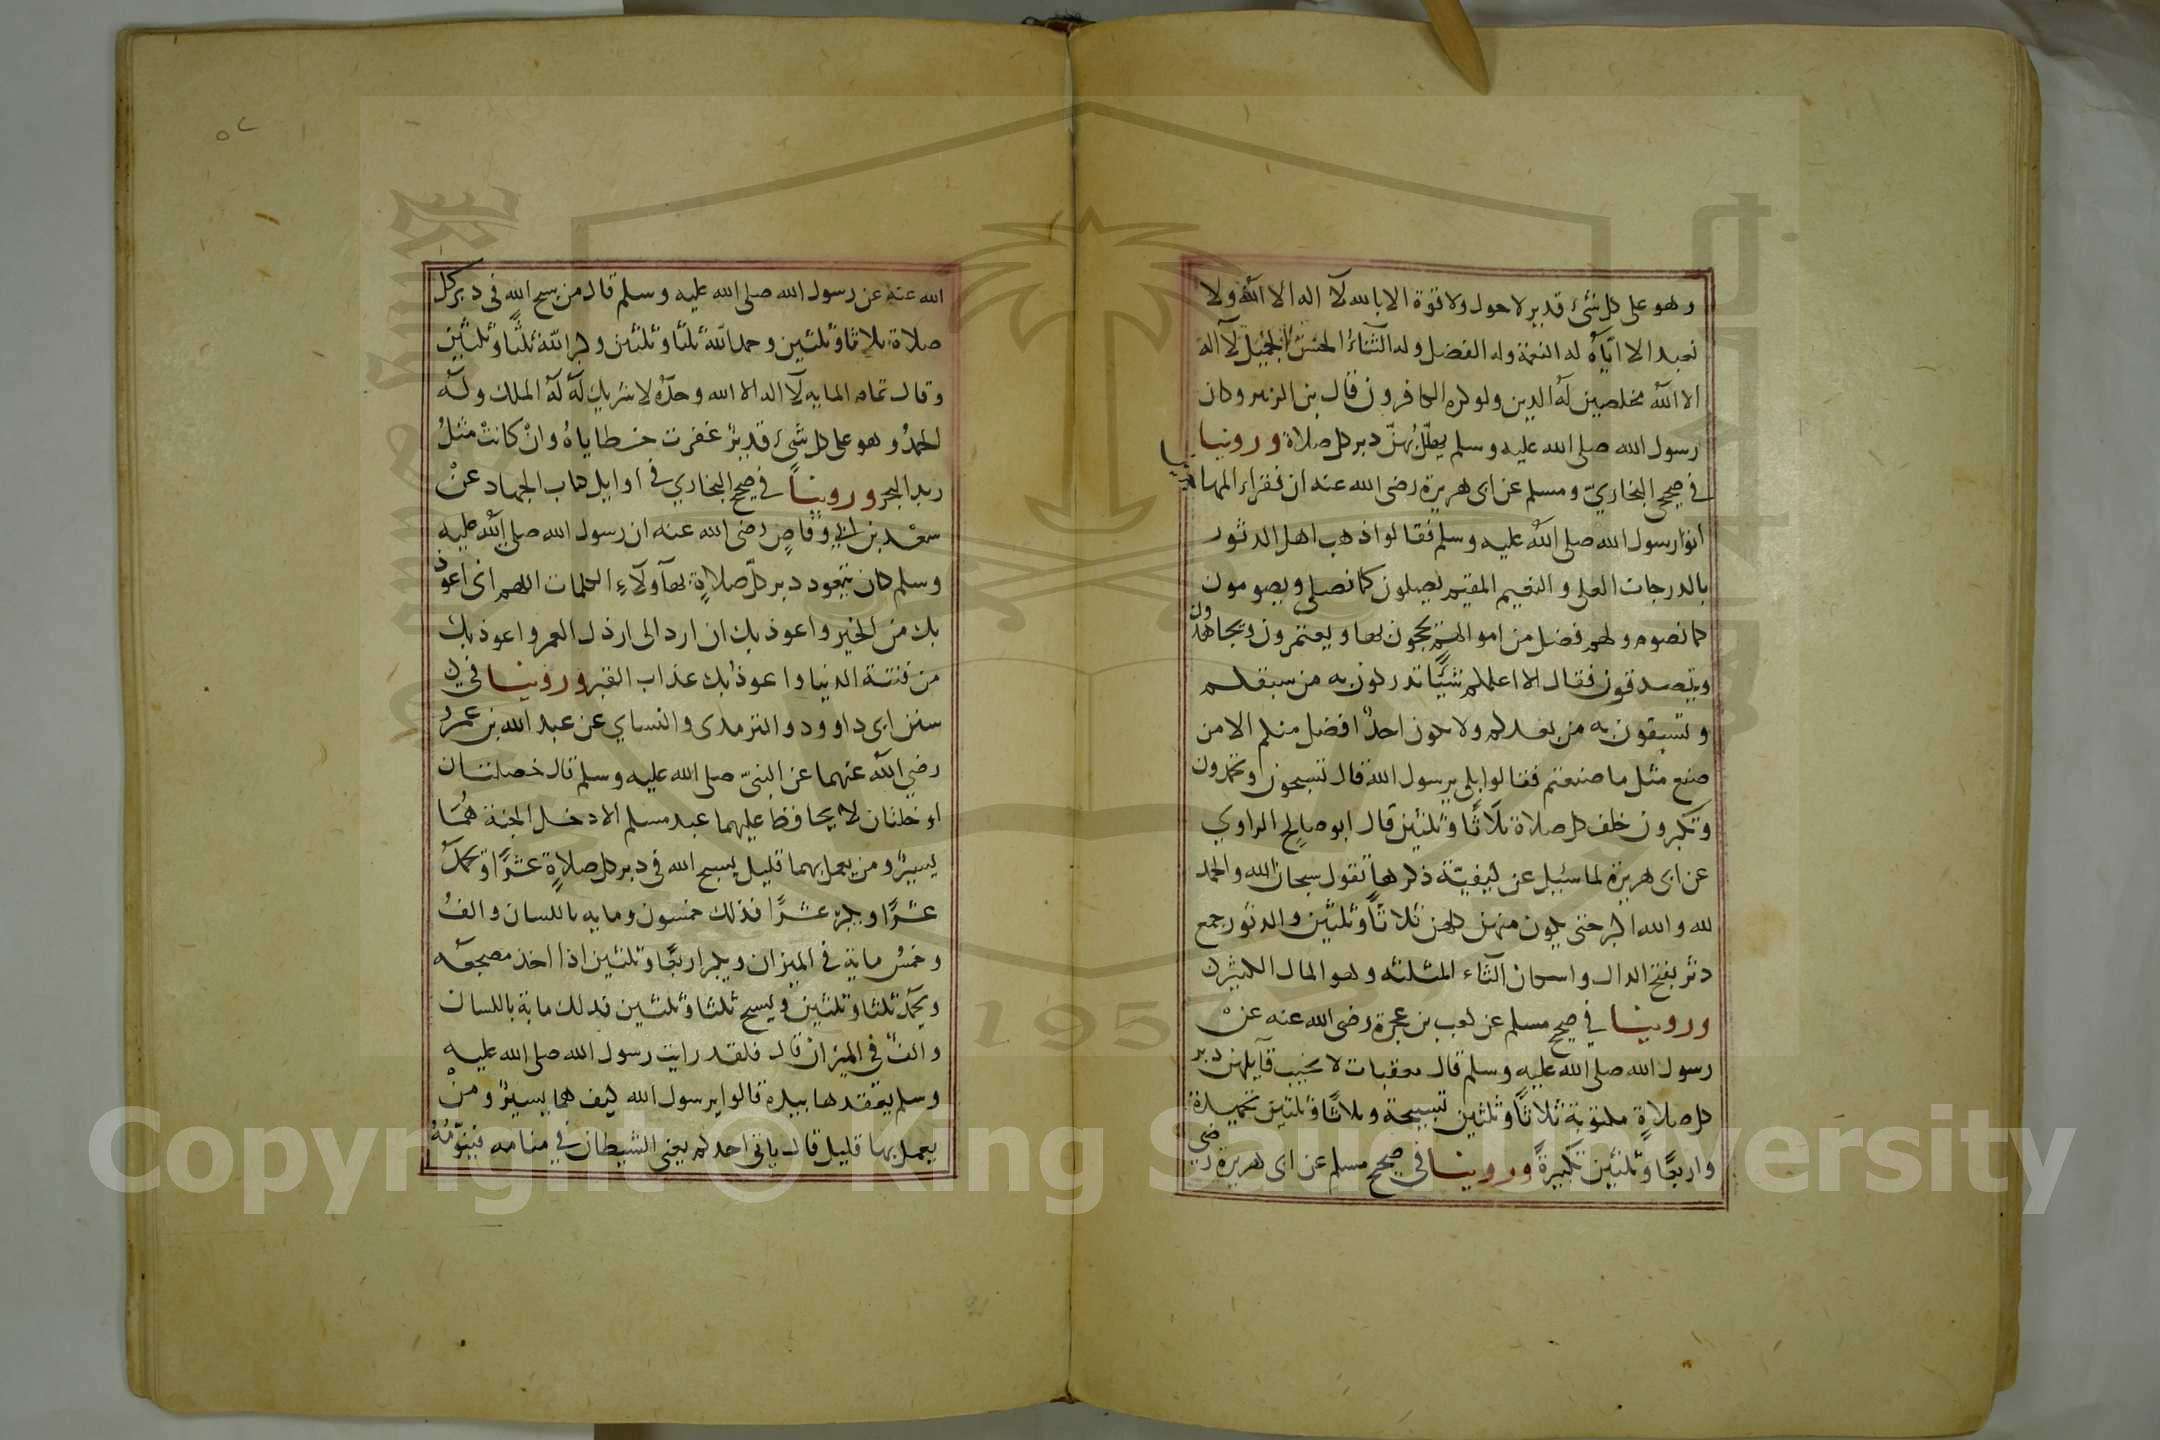 وهو على كل شئ قدير لاحول ولا قوة الا بالله لآ اله الا الله ولا
نعبد الا ايّاهُ له النعمة وله الفضل وله الثناءُ الحسنُ الجميل لآ اله
الا اللهُ مخلصين لَهُ الدين ولو كره الكافرون قال بن الزبير وكان
رسول الله صلى الله عليه وسلم يهلّل بُهنّ دبر كل صلاة وروينا
في صحيحى البخاريّ ومسلم عن ابى هريرة رضى الله عنه ان فقراء المها
اتوا رسول الله صلى اللهُ عليه وسلم فقالوا ذهب اهل الدثور
بالدرجات العلى والنعيم المقيم يصلون كما نصلى ويصومون
كما نصوم ولهم فضل من اموالهم يحجون بها ويعتمرون ويجاهدون
ويتصدقون فقال الا اعلمكم شيًا تدركون به من سبقكم
وتسبقون به من بعدكم ولا يكون احدٌ افضل منكم الا من
صنع مثل ما صنعتم فقالوا بلى يرسول الله قال تسبحون وتحمدون
وتكبرون خلف كل صلاة ثلاثًا وثلثين قال ابو صالح الراوي
عن ابى هريرة لما سُيِل عن كيفيّة ذكرها تقول سبحان الله والحمد
لله والله اكبر حتى يكون منهن كلهن ثلاثًا وثلثين والدثور جمع
دثر بفتح الدال واسكان الثاء المثلثه وهو المال الكثير
وروينا في صحيح مسلم عن كعب بن عجرة رضى الله عنه عنْ
رسول الله صلى الله عليه وسلم قال معقبات لا يخيب قآيلهن دبر
كل صلاةٍ مكتوبة ثلاثًا وثلثين تسبيحة وثلاثًا وثلثين تحميدةً
واربعًا وثلثين تكبيرةً وروينا في صحيح مسلم عن ابى هريرة رضى
٥٢
الله عنه عن رسول الله صلى الله عليه وسلم قال من سبح الله في دبر كل
صلاة ثلاثا وثلثين وحمد الله ثلثًا وثلثين وكبر الله ثلثًا وثلثين
وقال تمام المايه لآ اله الا الله وحدَهُ لا شريك لَهُ لَهُ الملك ولَهُ
الحمدُ وهو على كل شئ قديرٌ غفرت خطاياهُ وانْ كانتْ مثلُ
زبد البحر وروينا في صحيح البخاري في اوايل كتاب الجهاد عنْ
سعْد بن ابي وقاصٍ رضى الله عنه ان رسول الله صلى اللهُ عليه
وسلم كان يتعود دبر كلّ صلاةٍ بهآولآءِ الكلمات اللهم انى اعوذ
بك من الجبن واعوذ بك ان ارد الى ارذل العمر واعوذ بك
من فتنة الدنيا واعوذ بك عذاب القبر وروينا في
سنن ابى داوود والترمدى والنساي عن عبد الله بن عمرو
رضي الله عنهما عن النبىّ صلى الله عليه وسلم قال خصلتان
او خلتان لا يحافظ عليهما عبد مسلم الا دخل الجنة هُمَا
يسيرٌ ومن يعمل بهما قليل يسبح الله في دبر كل صلاةٍ عشرًا ويحمدُ
عشرًا ويكبره عشرًا فذلك خمسون ومايه باللسان والفٌ
وخمسُ ماية في الميزان ويكبر اربعًا وثلثين اذا اخذ مضجعه
ويحمد ثلثا وثلثين ويسبح ثلثا وثلثين فدلك مائة باللسان
والفٌ في الميزانْ قال فلقد رايت رسول الله صلى الله عليه
وسلم يعقدها بيده قالوا يرسول الله كيف هما يسيرٌ ومنْ
يعمل بهما قليل قال ياتى احدكم يعنى الشيطان في منامه فينوّمُهُ
Copyright © King Saud University
1957